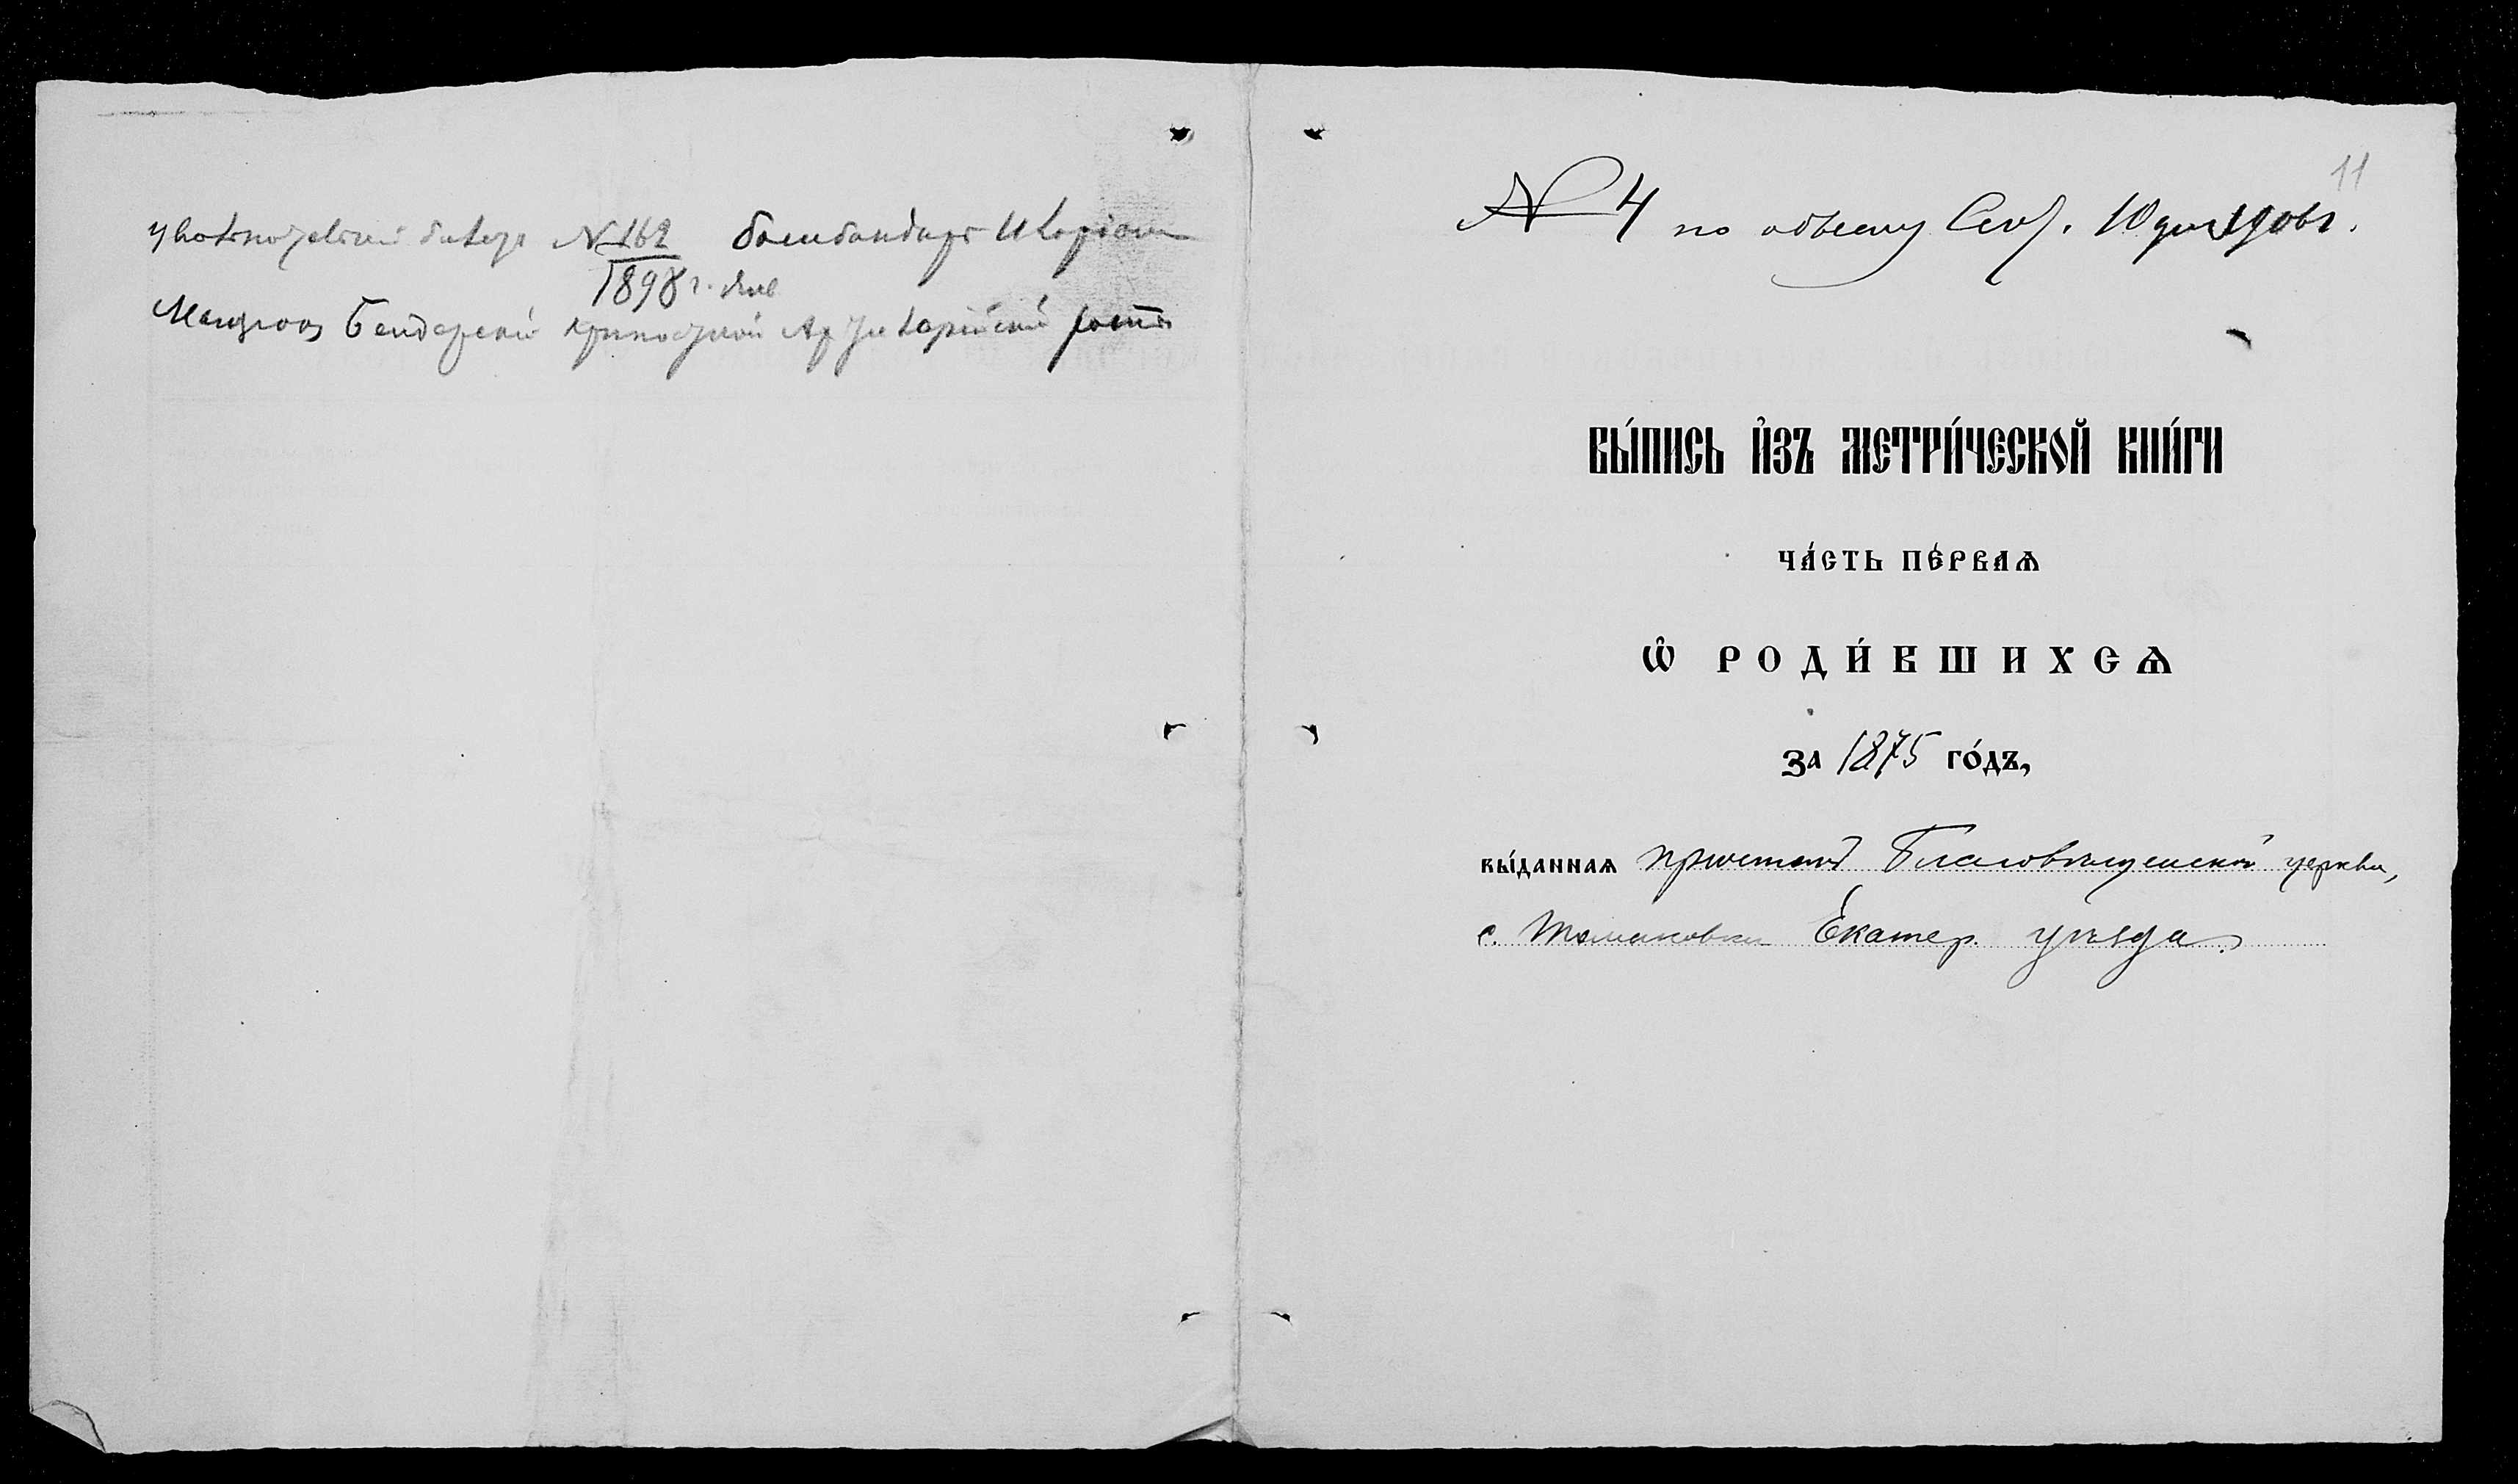 увольнительный билетъ № 162 бомбандиръ Иларіонъ
1898 г. дек
Бендерской крѣпостной Артилерійской роты
11
№ 4 по обыску 10 дня 1906 г.
ВЫ́ПИСЬ И҆ЗЪ МЕТРИ́ЧЕСКОЙ КНИ́ГИ
ЧА́СТЬ ПЕ́РВАѦ
Ѽ РОДИ́ВШИХСѦ
ЗА 1875 ГО́ДЪ,
ВЫ́ДАННАѦ причтомъ Благовѣщенской церкви,
с. Томаковки Екатер. уѣзда.